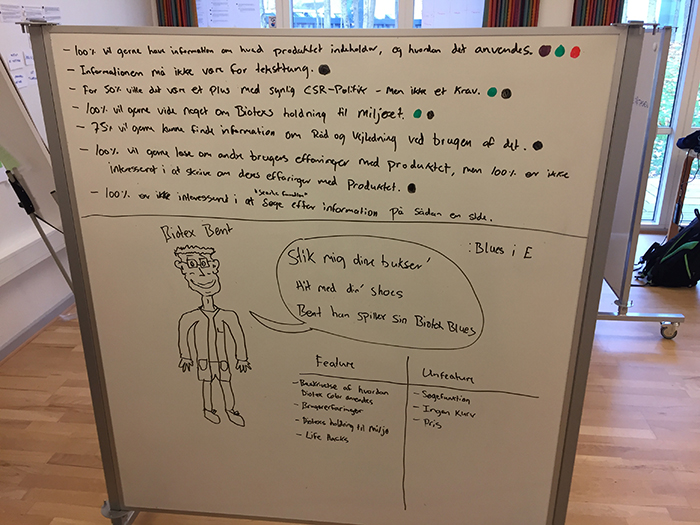 - 100% vil gerne have information om hvad produktet indeholder, og hvordan det anvendes.
- Informationen må ikke være for teksttung.
- For 50% ville det være et plus med synlig CSR-Politik - Men ikke et krav.
- 100% vil gerne vide noget om Biotexs holdning til miljøet.
- 75% vil gerne kunne finde information om Råd og Vejledning ved brugen af det.
- 100% vil gerne læse om andre brugers erfaringer med produktet, men 100% er ikke
interesseret i at skrive om deres erfaringer med Produktet.
"Search Function"
- 100% er ikke interesseret i at Søge efter information på sådan en side.
Biotex Bent
: Blues i E
Stik mig dine bukser'
Hit med din' shoes
Bent han spiller sin Biotex Blues
Feature
- Beskrivelse af hvordan
Biotex Color anvendes
- Brugererfaringer
- Biotexs holdning til miljø
- Life Hacks
Unfeature
- Søgefunktion
- Ingen Kurv
- Pris